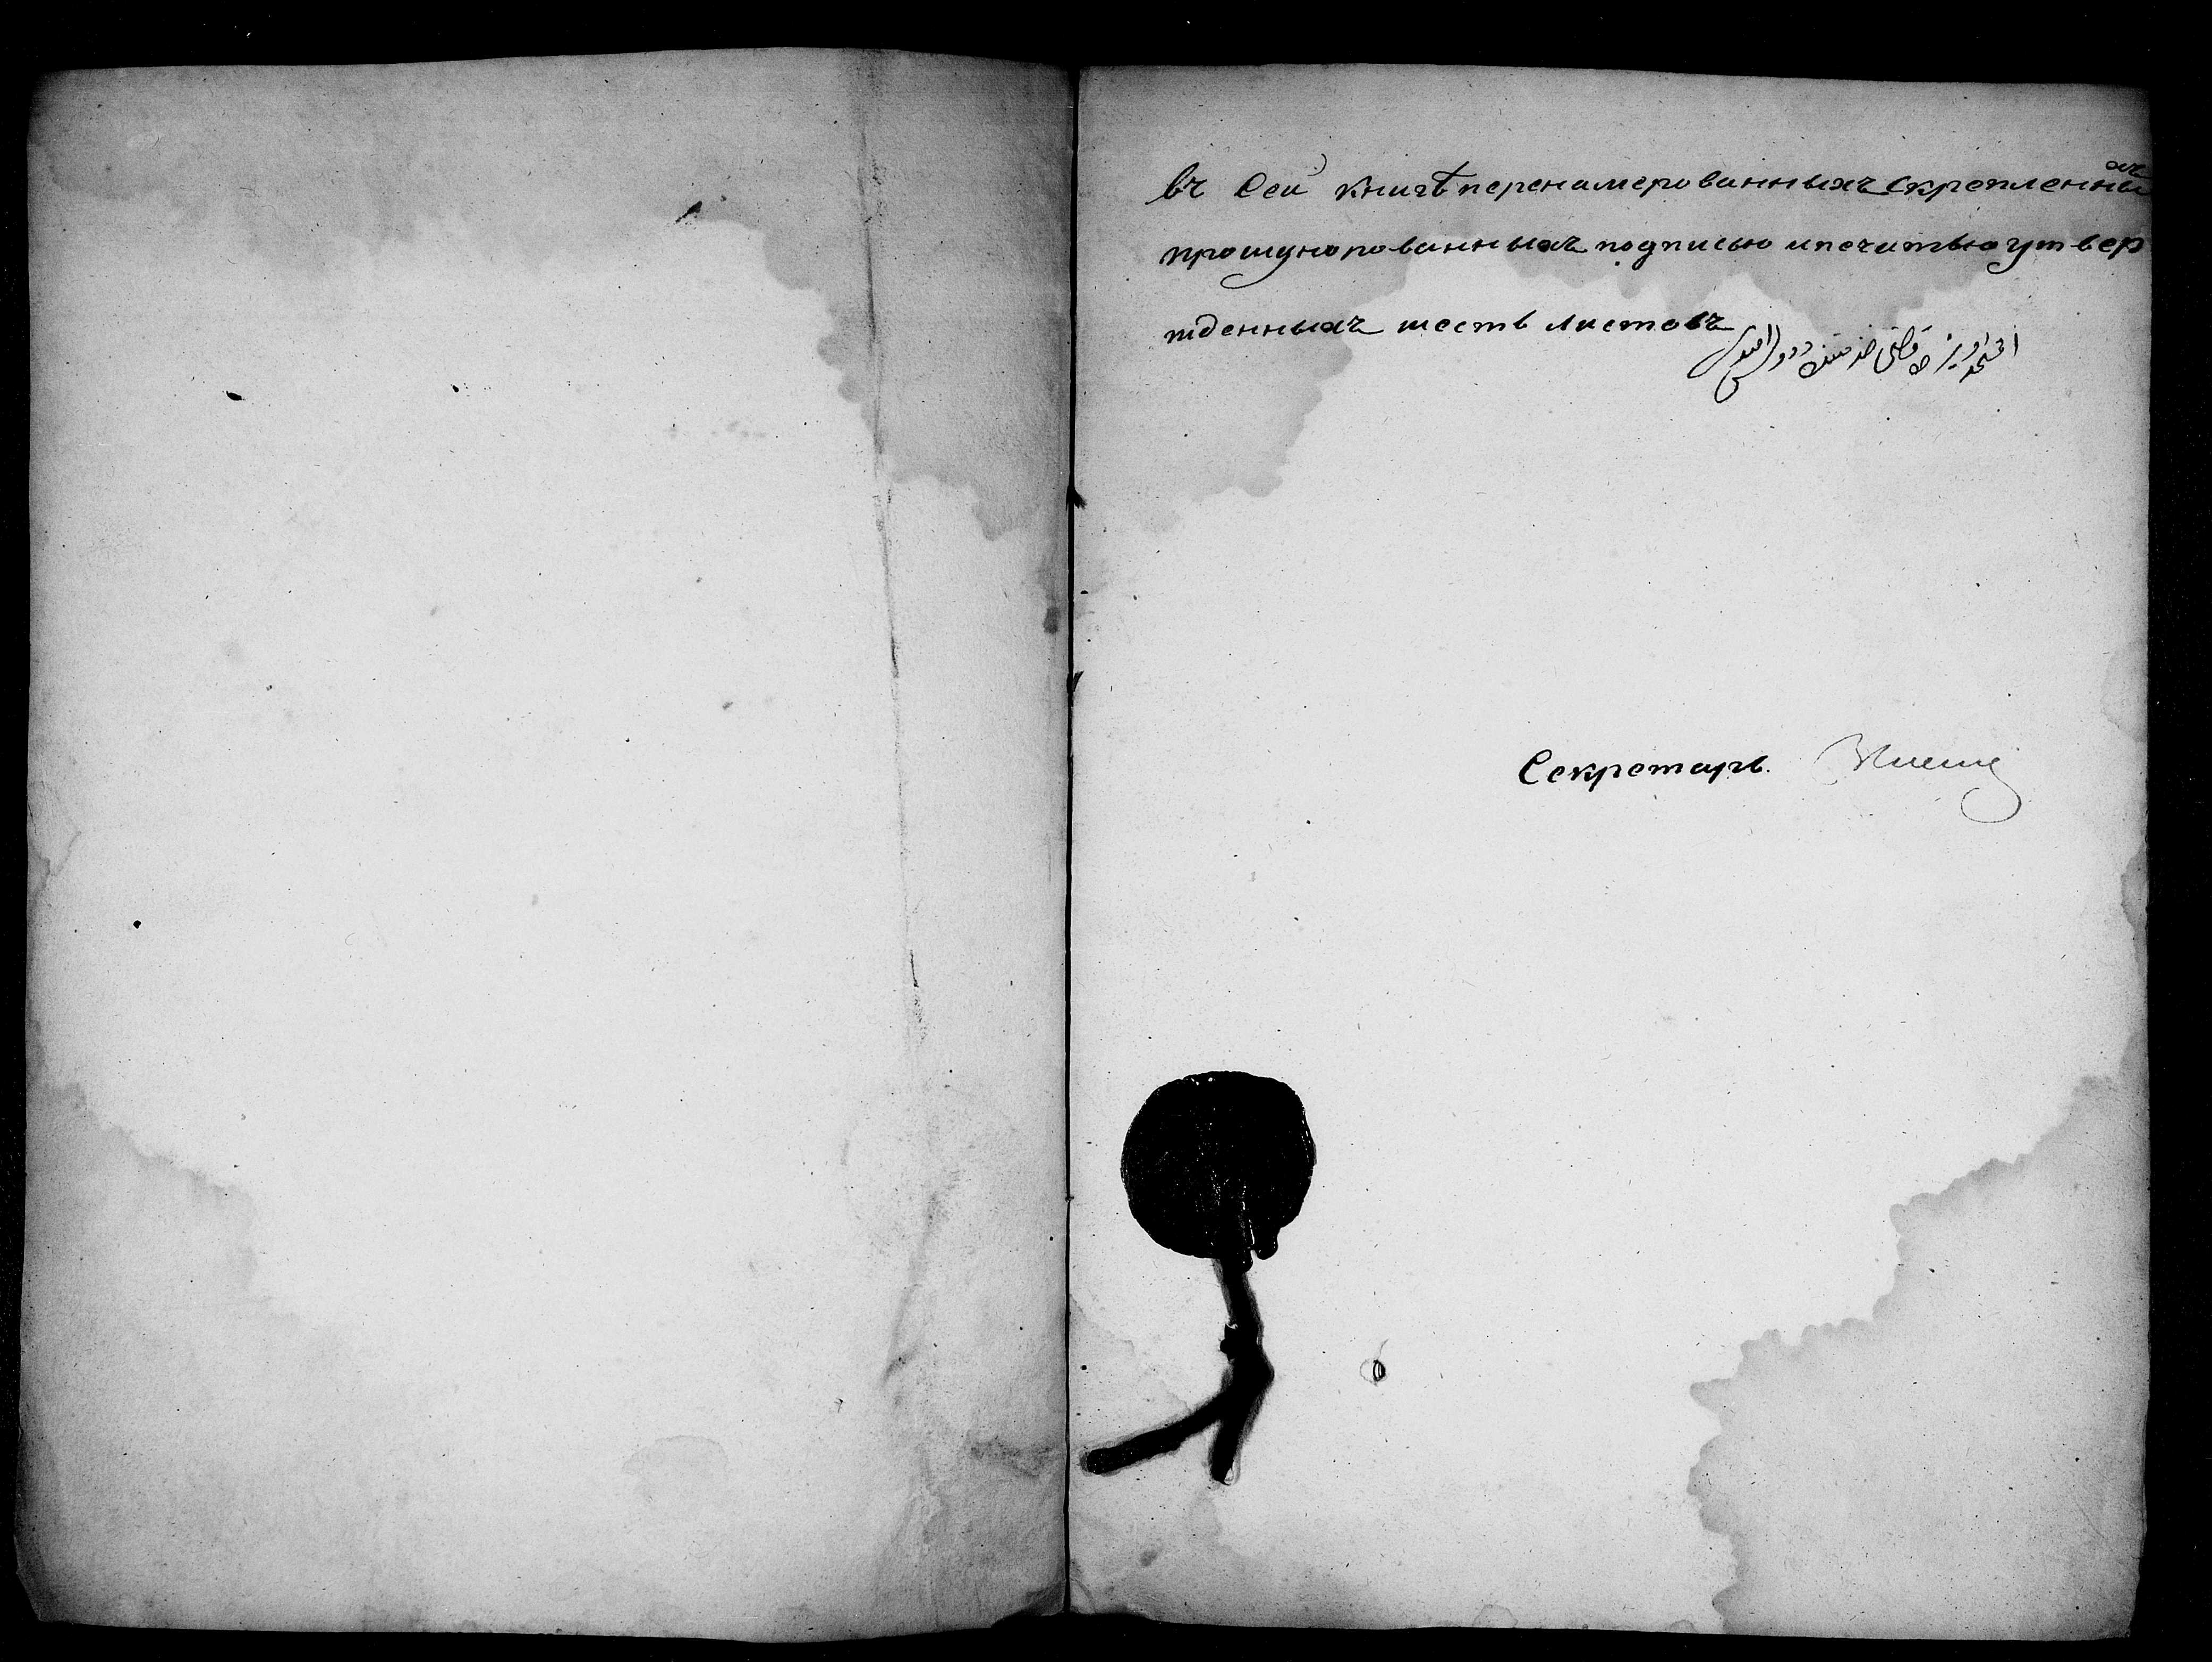 въ сей книгѣ перенамерованныхъ скрепленныхъ
прошунорованныхъ подписью и печатью утвер
жденныхъ шесть листовъ
Секретарь